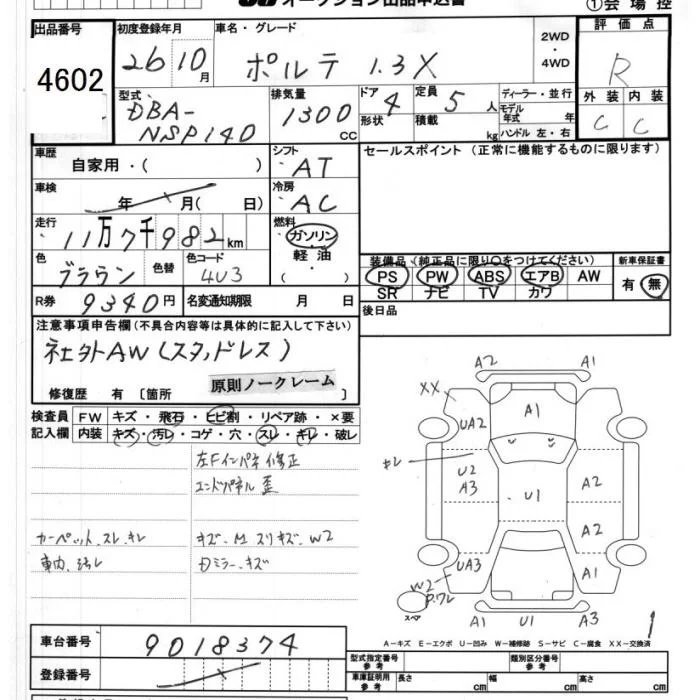 オークション出品申込書 ①会場控
出品番号 初度登録年月 車名・グレード 2WD・4WD 評価点
4602 26 10月 ポルテ 1.3X R
型式 DBA-NSP140 排気量 1300 CC ドア 4 形状 定員 5 人 積載 kg ディーラー・並行 モデル年式 年 ハンドル 左・右 外装 内装
C C
車歴 自家用・( ) シフト AT セールスポイント (正常に機能するものに限ります)
車検 年 月( 日) 冷房 AC
走行 11万7千982km 燃料 ガソリン・軽油・( )
色 ブラウン 色替 色コード 4U3
装備品 (純正品に限り○をつけてください) 新車保証書
PS PW ABS エアB AW 有・無
SR ナビ TV カワ
R券 9340円 名変通知期限 月 日 後日品
注意事項申告欄(不具合内容等は具体的に記入して下さい)
社外AW(スタッドレス)
原則ノークレーム
修復歴 有 〔箇所 〕
検査員記入欄 FW キズ・飛石・ヒビ割・リペア跡・×要
内装 キズ・汚レ・コゲ・穴・スレ・キレ・破レ
左Fインパネ修正
エンドパネル歪
カーペット.スレ.キレ キズ.M スリキズ.W2
車内.汚レ Dミラー.キズ
A2 A1
XX A1
UA2
キレ U2 A2
A3 U1
A2
UA3 A1
W2
P.ワレ
スペア A1 U1 A3 1
A-キズ E-エクボ U-凹み W-補修跡 S-サビ C-腐食 XX-交換済
車台番号 9018374
登録番号
型式指定番号 参考 類別区分番号 参考
車庫証明用 参考 長さ cm 幅 cm 高さ cm